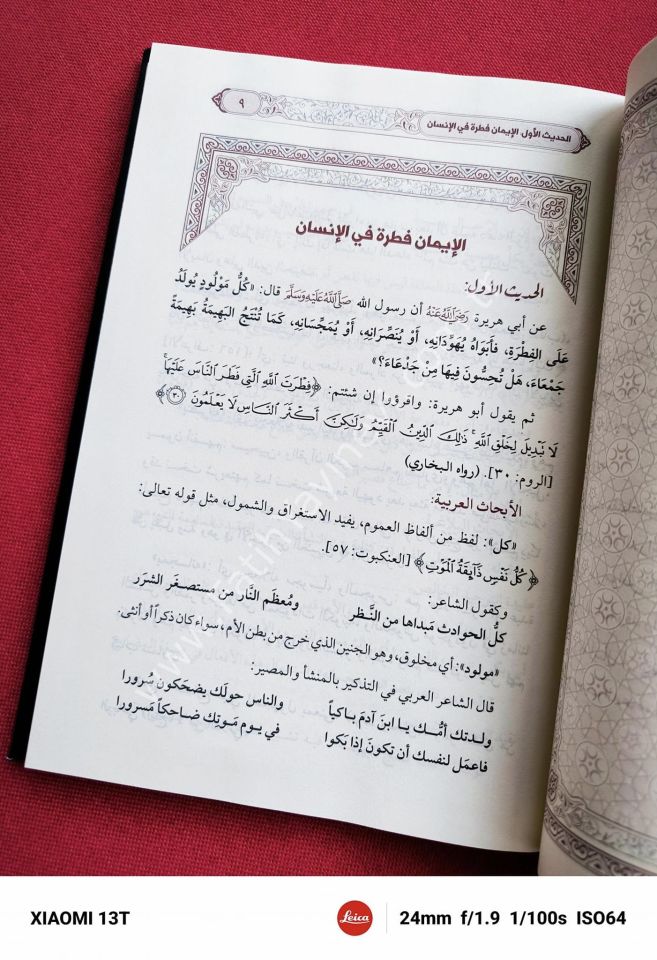 الحديث الأول: الإيمان فطرة في الإنسان
٩
الإيمان فطرة في الإنسان
الحديث الأول:
عن أبي هريرة رَضِيَ اللَّهُ عَنْهُ أن رسول الله صَلَّى اللَّهُ عَلَيْهِ وَسَلَّمَ قال: «كُلُّ مَوْلُودٍ يُولَدُ
عَلَى الفِطْرَةِ، فَأَبَوَاهُ يُهَوِّدَانِهِ، أَوْ يُنَصِّرَانِهِ، أَوْ يُمَجِّسَانِهِ، كَمَا تُنْتَجُ البَهِيمَةُ بَهِيمَةً
جَمْعَاءَ، هَلْ تُحِسُّونَ فِيهَا مِنْ جَدْعَاءَ؟»
ثم يقول أبو هريرة: واقرؤوا إن شئتم: ﴿فِطْرَتَ اللَّهِ الَّتِي فَطَرَ النَّاسَ عَلَيْهَا ۚ
لَا تَبْدِيلَ لِخَلْقِ اللَّهِ ۚ ذَٰلِكَ الدِّينُ الْقَيِّمُ وَلَٰكِنَّ أَكْثَرَ النَّاسِ لَا يَعْلَمُونَ ٣٠﴾
[الروم: ٣٠]. (رواه البخاري)
الأبحاث العربية:
«كل»: لفظ من ألفاظ العموم، يفيد الاستغراق والشمول، مثل قوله تعالى:
﴿كُلُّ نَفْسٍ ذَائِقَةُ الْمَوْتِ﴾ [العنكبوت: ٥٧].
وكقول الشاعر:
كلُّ الحوادث مَبداها من النَّـظر ومُعظَم النَّار من مستصغَر الشرَر
«مولود»: أي مخلوق، وهو الجنين الذي خرج من بطن الأم، سواء كان ذكراً أو أنثى.
قال الشاعر العربي في التذكير بالمنشأ والمصير:
ولـدتك أمُّـــك يـا ابـن آدمَ بـاكيـاً والناس حولَك يضحَكون سُرورا
فاعمَل لنفسك أن تكونَ إذا بَكَوا في يـوم مَـوتِك ضاحكـاً مَسرورا
www.fatihyayinevi.com
XIAOMI 13T
Leica
24mm f/1.9 1/100s ISO64